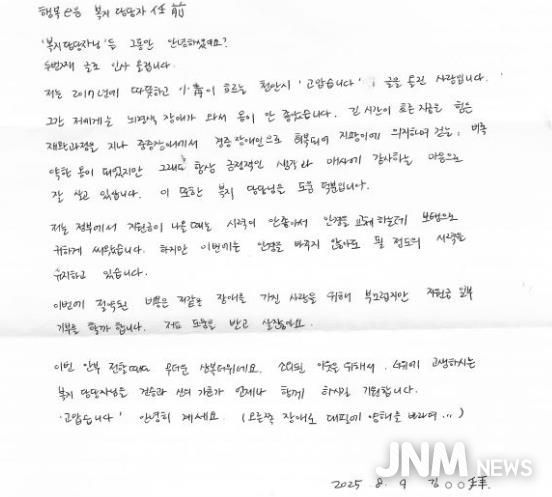 행복e음 복지 담당자 任前
'복지담당자님'들 그동안 안녕하셨어요?
두번째 글로 인사 올립니다.
저는 2017년에 따뜻하고 이 흐르는 천안시 '고맙습니다' 글을 올린 사람입니다.
그간 저에게는 뇌병변 장애가 와서 몸이 안 좋았습니다. 긴 시간이 흐른 지금은 힘든
재활과정을 지나 중증장애에서 경증장애인으로 회복되어 지팡이에 의지하여 걷는, 비록
약한 몸이 되었지만 그래도 항상 긍정적인 생각과 매사에 감사하는 마음으로
잘 살고 있습니다. 이 또한 복지 담당님들 도움 덕분입니다.
저는 정부에서 지원금이 나올 때는 시력이 안좋아서 안경을 교체 하는데 보탬으로
귀하게 써왔습니다. 하지만 이번에는 안경을 바꾸지 않아도 될 정도의 시력을
유지하고 있습니다.
이번에 절약된 비용은 저같은 장애를 가진 사람을 위해 부끄럽지만 지원금 일부
기부를 할까 합니다. 저도 도움을 받고 살잖아요.
이번 안부 전할때는 무더운 삼복더위네요. 소외된 이웃을 위해서, 더위에 고생하시는
복지 담당자님들 건승과 신의 가호가 언제나 함께 하시길 기원합니다.
'고맙습니다' 안녕히 계세요. (오른쪽 장애로 대필에 양해를 바라며...)
2025 8. 9 김○○拜.
JNM NEWS